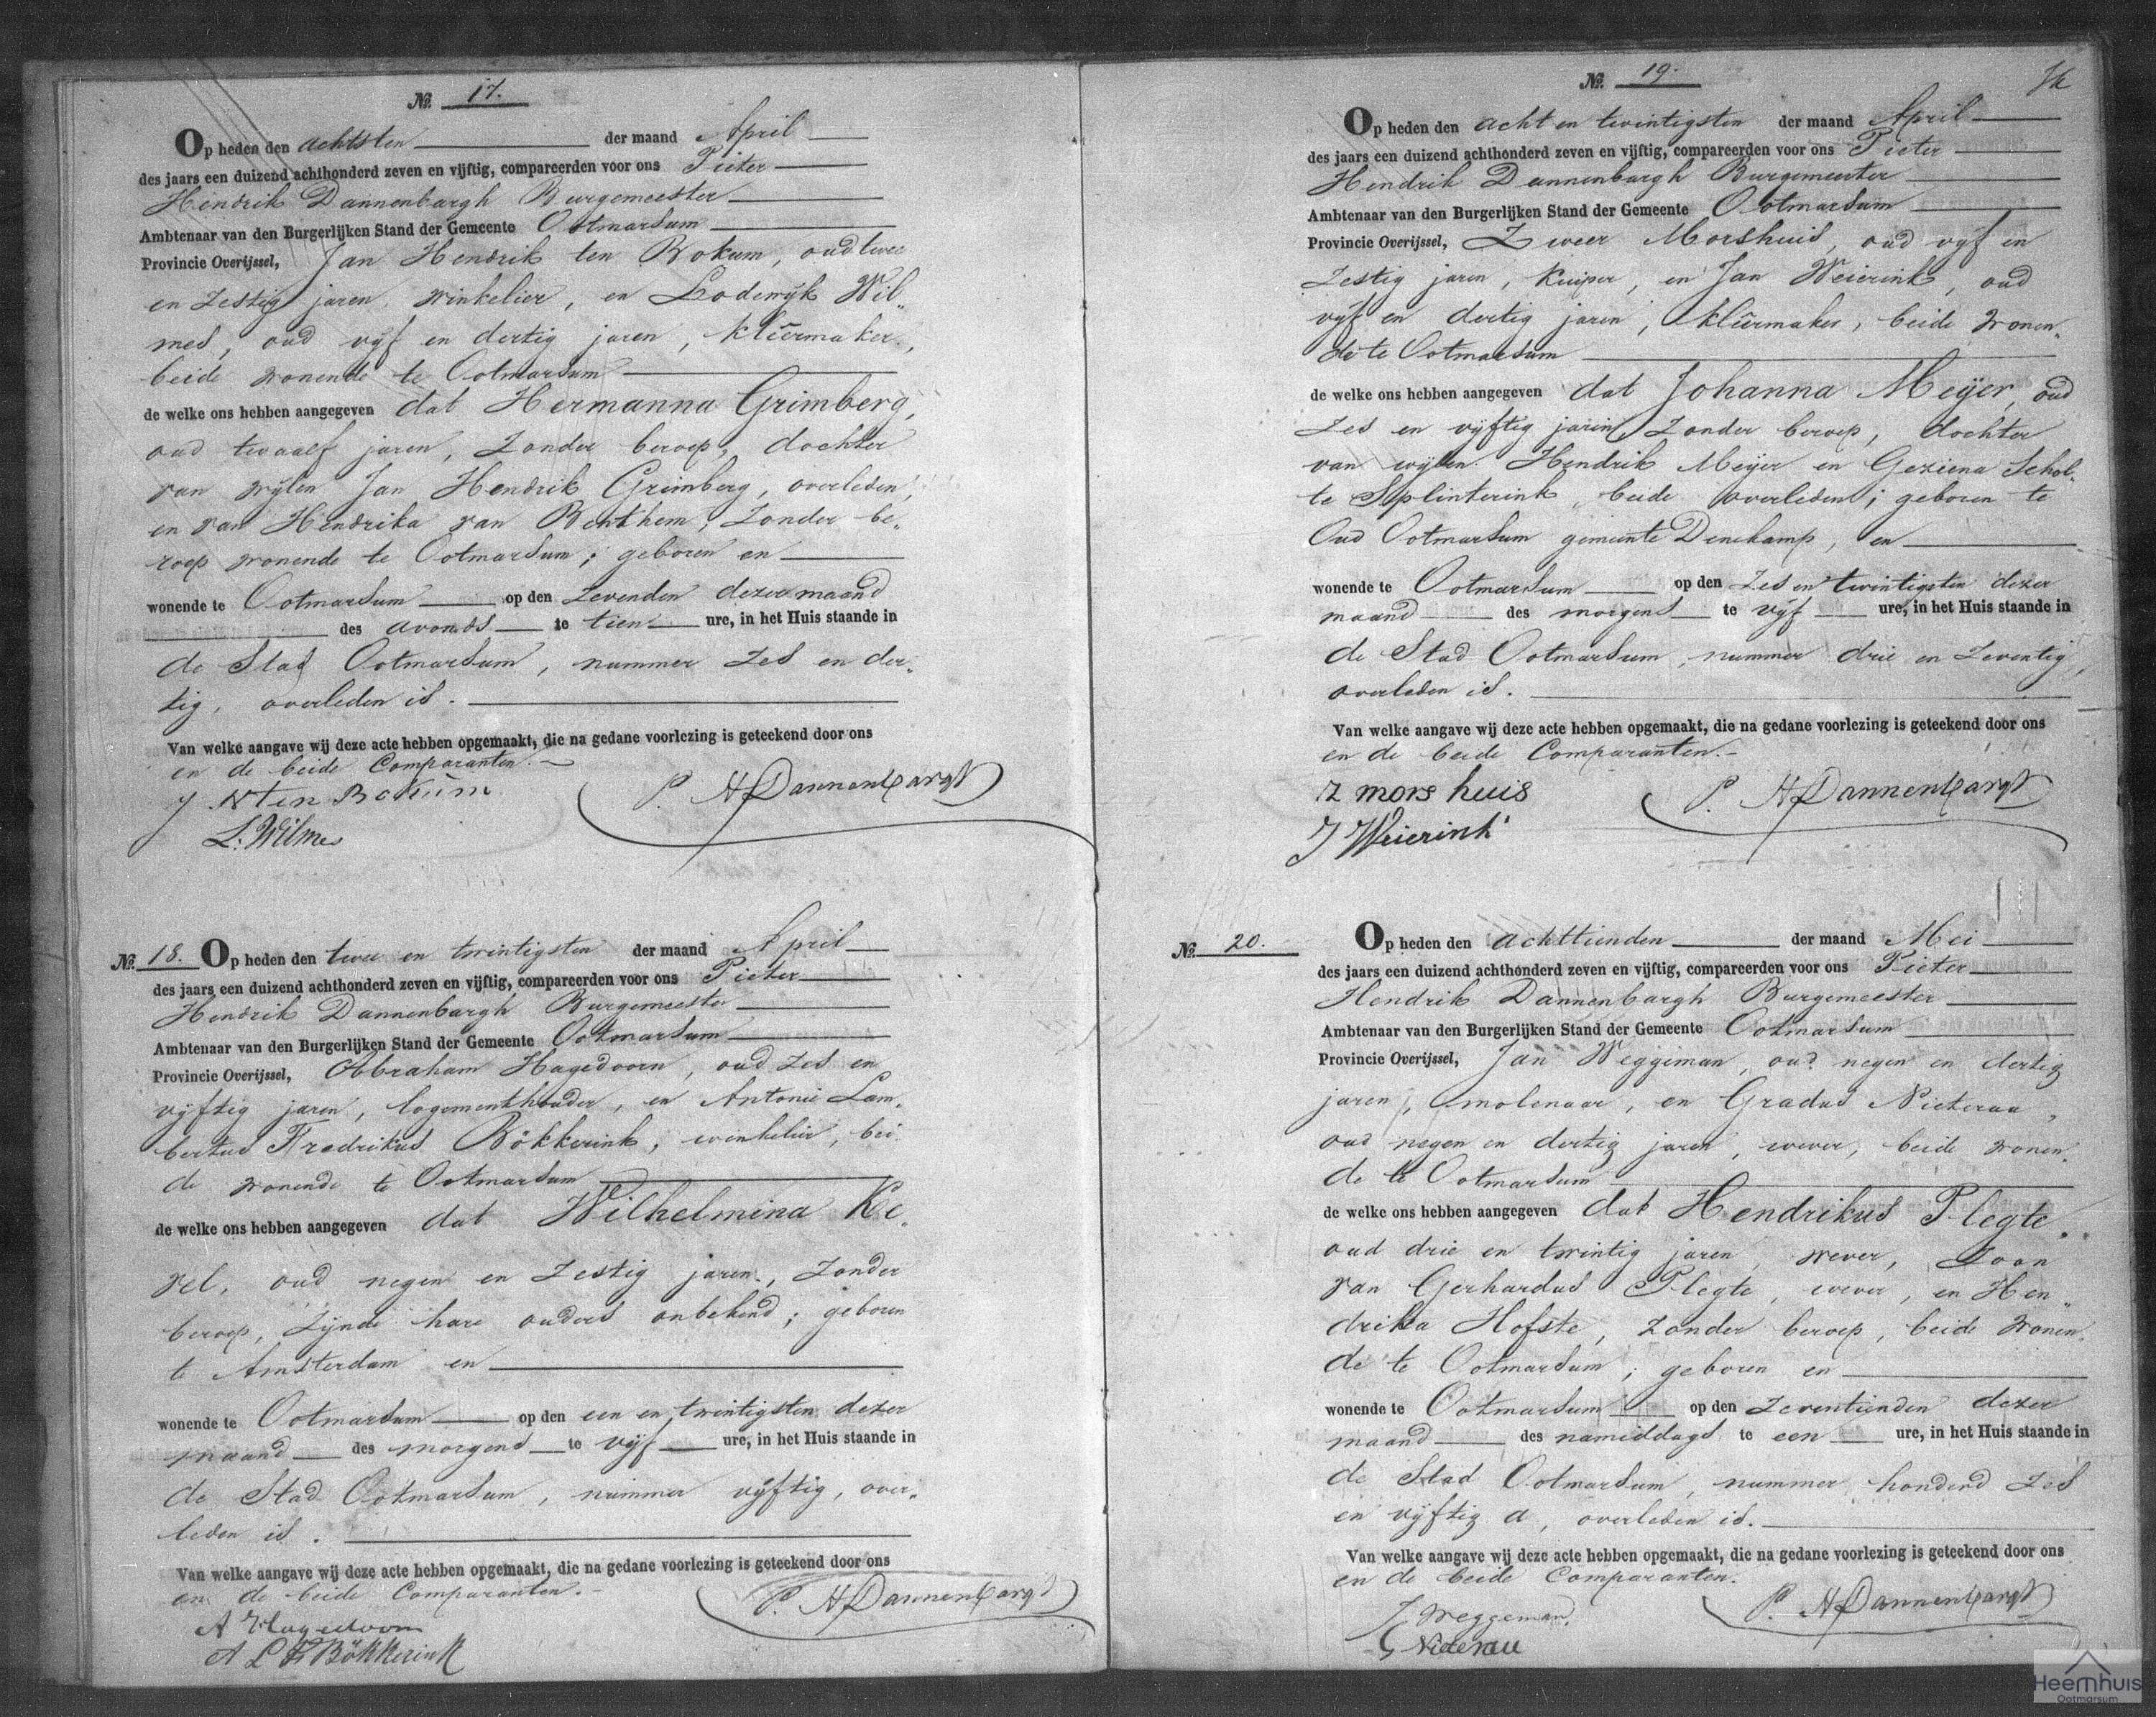 №. 17.
Op heden den achtsten der maand April
des jaars een duizend achthonderd zeven en vijftig, compareerden voor ons Pieter
Hendrik Dannenbargh Burgemeester
Ambtenaar van den Burgerlijken Stand der Gemeente Ootmarsum
Provincie Overijssel, Jan Hendrik ten Bokum, oud twee
en zestig jaren, winkelier, en Lodewijk Wil„
mes, oud vijf en dertig jaren, kleêrmaker,
beide wonende te Ootmarsum
de welke ons hebben aangegeven dat Hermanna Grimberg,
oud twaalf jaren, zonder beroep, dochter
van wijlen Jan Hendrik Grimberg, overleden,
en van Hendrika van Benthem, zonder be„
roep wonende te Ootmarsum; geboren en
wonende te Ootmarsum op den zevenden dezer maand
des avonds te tien ure, in het Huis staande in
de Stad Ootmarsum, nummer zes en der„
tig, overleden is.
Van welke aangave wij deze acte hebben opgemaakt, die na gedane voorlezing is geteekend door ons
en de beide Comparanten.
J. H ten Bokum P. H Dannenbargh
L. Wilmes
№. 18. Op heden den twee en twintigsten der maand April
des jaars een duizend achthonderd zeven en vijftig, compareerden voor ons Pieter
Hendrik Dannenbargh Burgemeester
Ambtenaar van den Burgerlijken Stand der Gemeente Ootmarsum
Provincie Overijssel, Abraham Hagedoorn, oud zes en
vijftig jaren, logementhouder, en Antonie Lam„
bertus Fredrikus Bökkerink, winkelier, bei„
de wonende te Ootmarsum
de welke ons hebben aangegeven dat Wilhelmina Ke„
vel, oud negen en zestig jaren, zonder
beroep, zijnde hare ouders onbekend; geboren
te Amsterdam en
wonende te Ootmarsum op den een en twintigsten dezer
maand des morgens te vijf ure, in het Huis staande in
de Stad Ootmarsum, nummer vijftig, over„
leden is.
Van welke aangave wij deze acte hebben opgemaakt, die na gedane voorlezing is geteekend door ons
en de beide Comparanten.
A Hagedoorn P. H Dannenbargh
A L F Bökkerink
№. 19.
Op heden den acht en twintigsten der maand April
des jaars een duizend achthonderd zeven en vijftig, compareerden voor ons Pieter
Hendrik Dannenbargh Burgemeester
Ambtenaar van den Burgerlijken Stand der Gemeente Ootmarsum
Provincie Overijssel, Zweer Morshuis, oud vijf en
zestig jaren, kuiper, en Jan Weierink, oud
vijf en dertig jaren, kleêrmaker, beide wonen„
de te Ootmarsum
de welke ons hebben aangegeven dat Johanna Meijer, oud
zes en vijftig jaren, zonder beroep, dochter
van wijlen Hendrik Meijer en Geziena Schol„
te Splinterink, beide overleden; geboren te
Oud Ootmarsum gemeente Denekamp, en
wonende te Ootmarsum op den zes en twintigsten dezer
maand des morgens te vijf ure, in het Huis staande in
de Stad Ootmarsum, nummer drie en zeventig,
overleden is.
Van welke aangave wij deze acte hebben opgemaakt, die na gedane voorlezing is geteekend door ons
en de beide Comparanten.
Z mors huis P. H Dannenbargh
J Weierink
№. 20. Op heden den achttienden der maand Mei
des jaars een duizend achthonderd zeven en vijftig, compareerden voor ons Pieter
Hendrik Dannenbargh Burgemeester
Ambtenaar van den Burgerlijken Stand der Gemeente Ootmarsum
Provincie Overijssel, Jan Weggeman, oud negen en dertig
jaren, molenaar, en Gradus Nieteraa,
oud negen en dertig jaren, wever, beide wonen„
de te Ootmarsum
de welke ons hebben aangegeven dat Hendrikus Plegte,
oud drie en twintig jaren, wever, zoon
van Gerhardus Plegte, wever, en Hen„
drika Hofste, zonder beroep, beide wonen„
de te Ootmarsum; geboren en
wonende te Ootmarsum op den zeventienden dezer
maand des namiddags te een ure, in het Huis staande in
de Stad Ootmarsum, nummer honderd zes
en vijftig a, overleden is.
Van welke aangave wij deze acte hebben opgemaakt, die na gedane voorlezing is geteekend door ons
en de beide Comparanten.
J Weggeman P. H Dannenbargh
G
Heemhuis
Ootmarsum